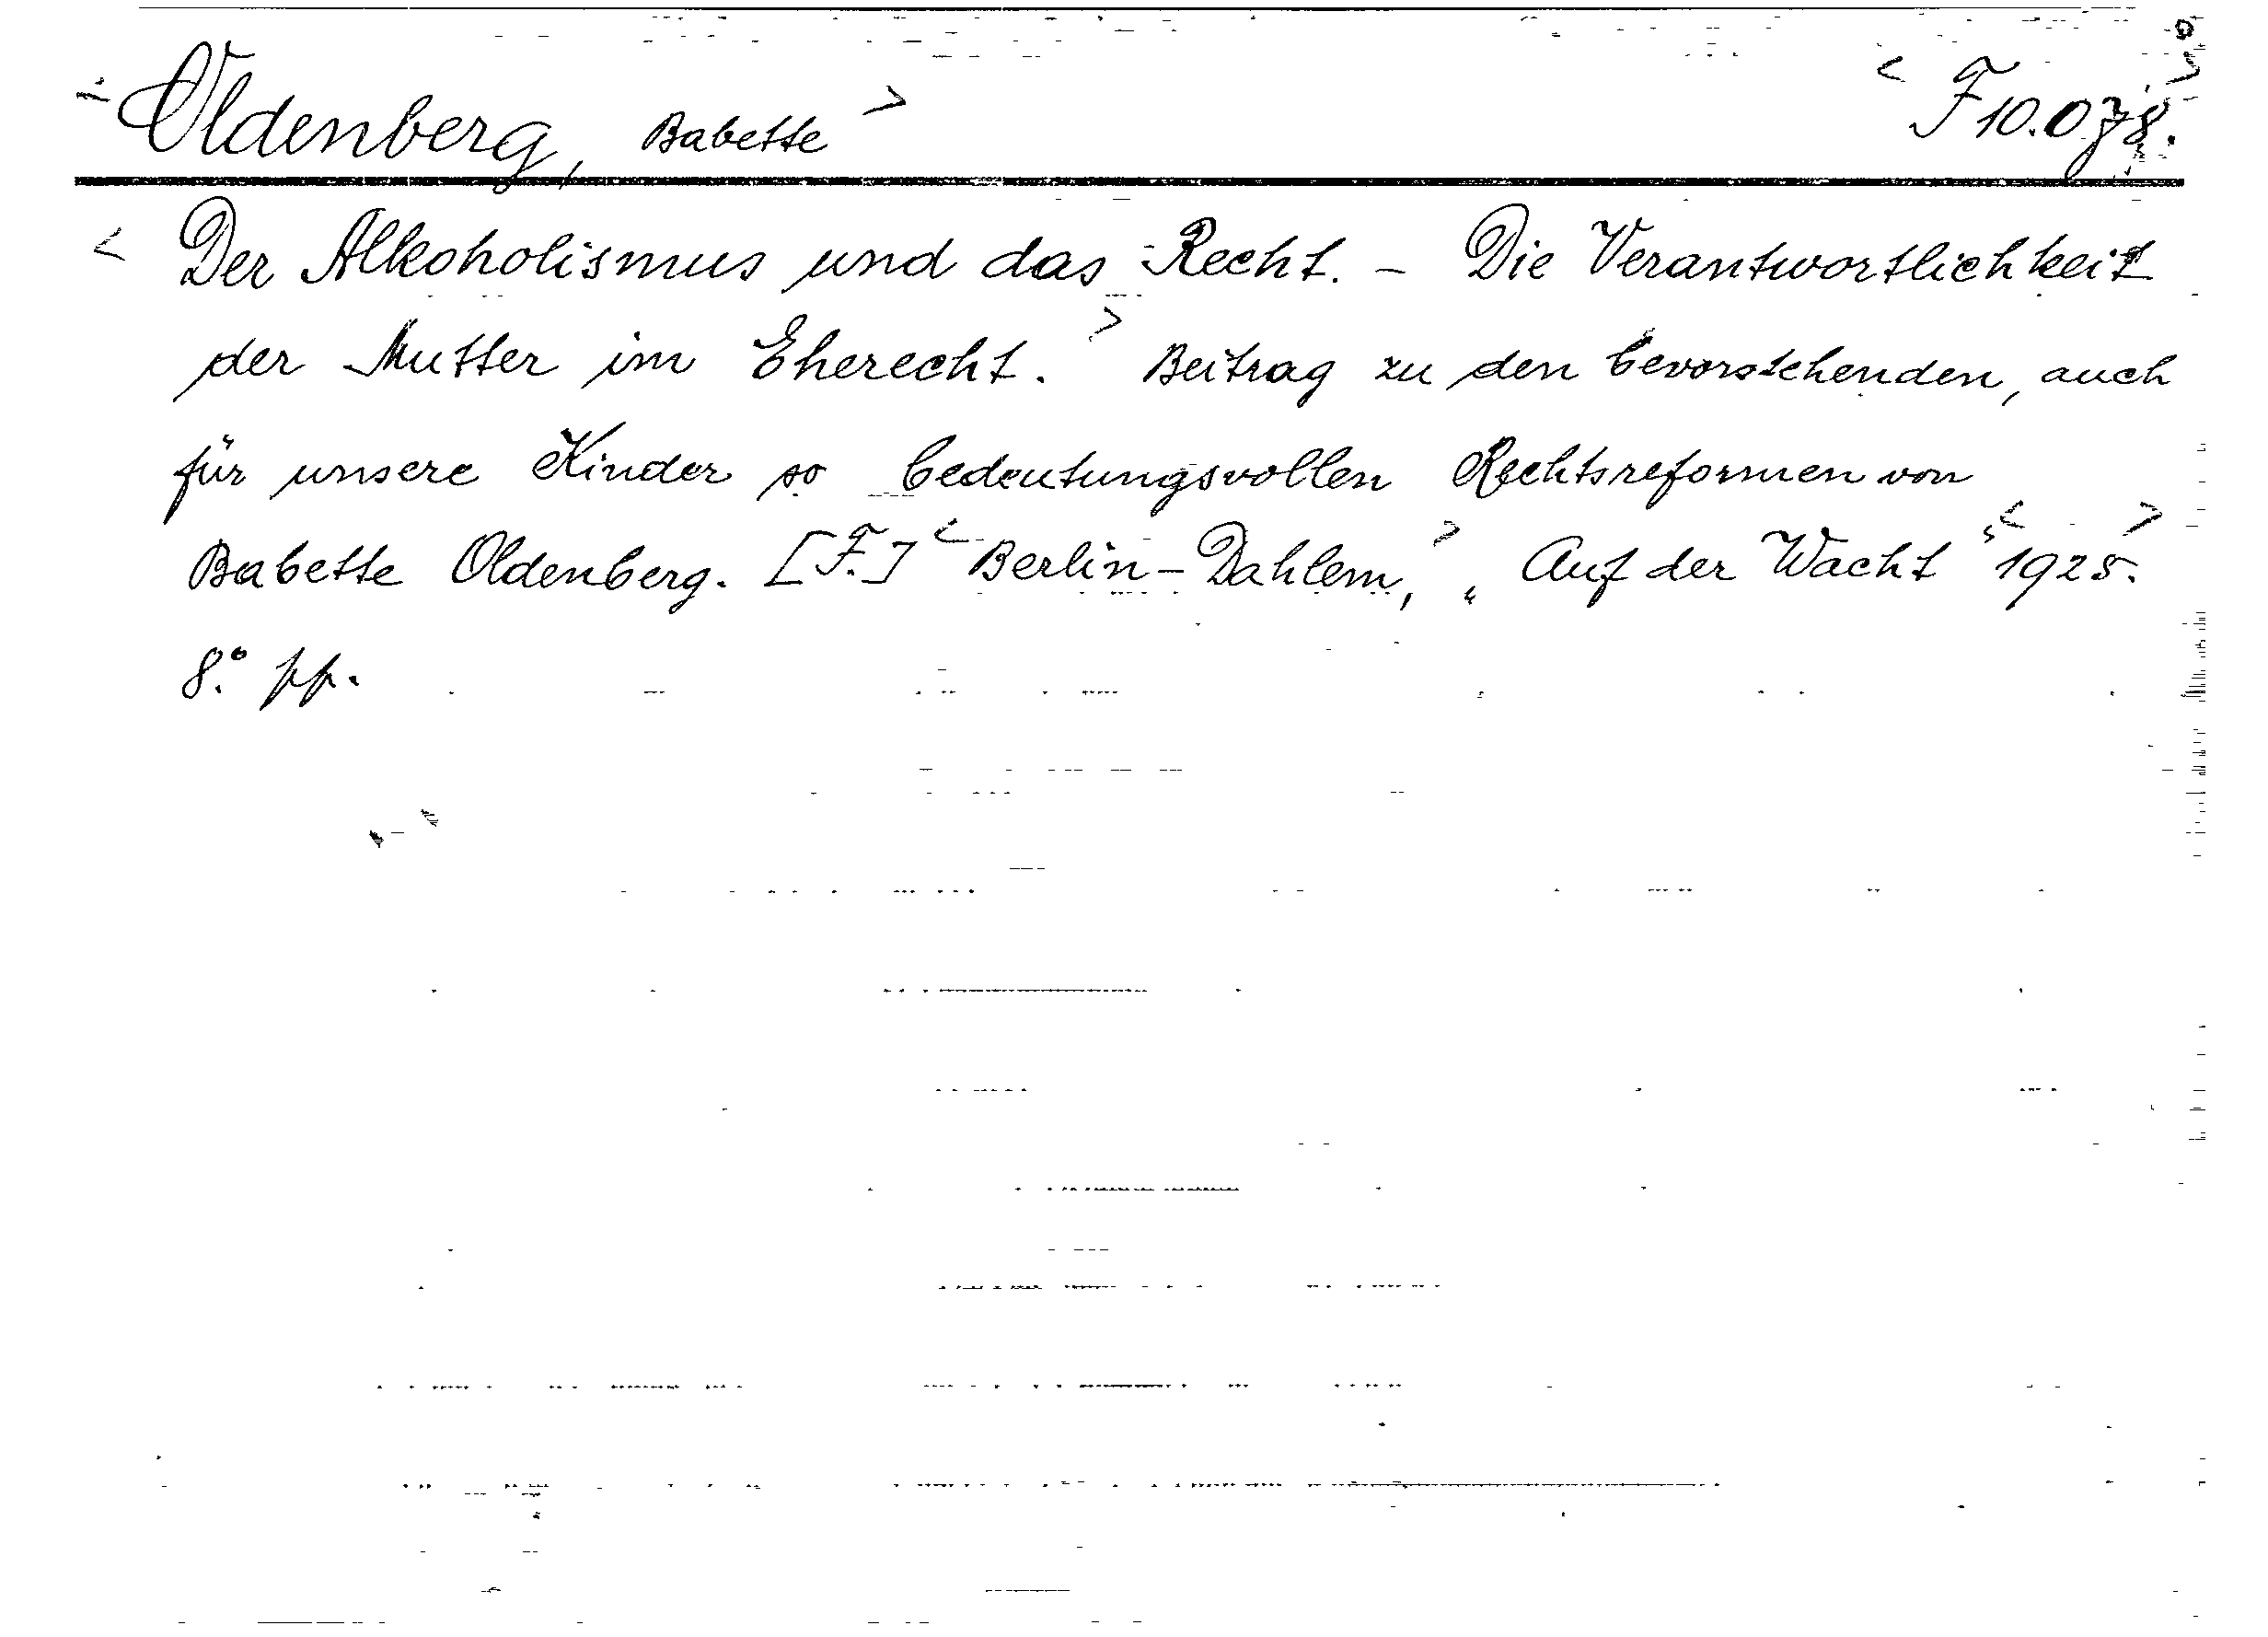 < Oldenberg, Babette > < F 10.078. >
< Der Alkoholismus und das Recht. - Die Verantwortlichkeit
der Mutter im Eherecht. > Beitrag zu den bevorstehenden, auch
für unsere Kinder so bedeutungsvollen Rechtsreformen von
Babette Oldenberg. [F.] < Berlin-Dahlem, > „Auf der Wacht“ < 1925. >
8.° pp.